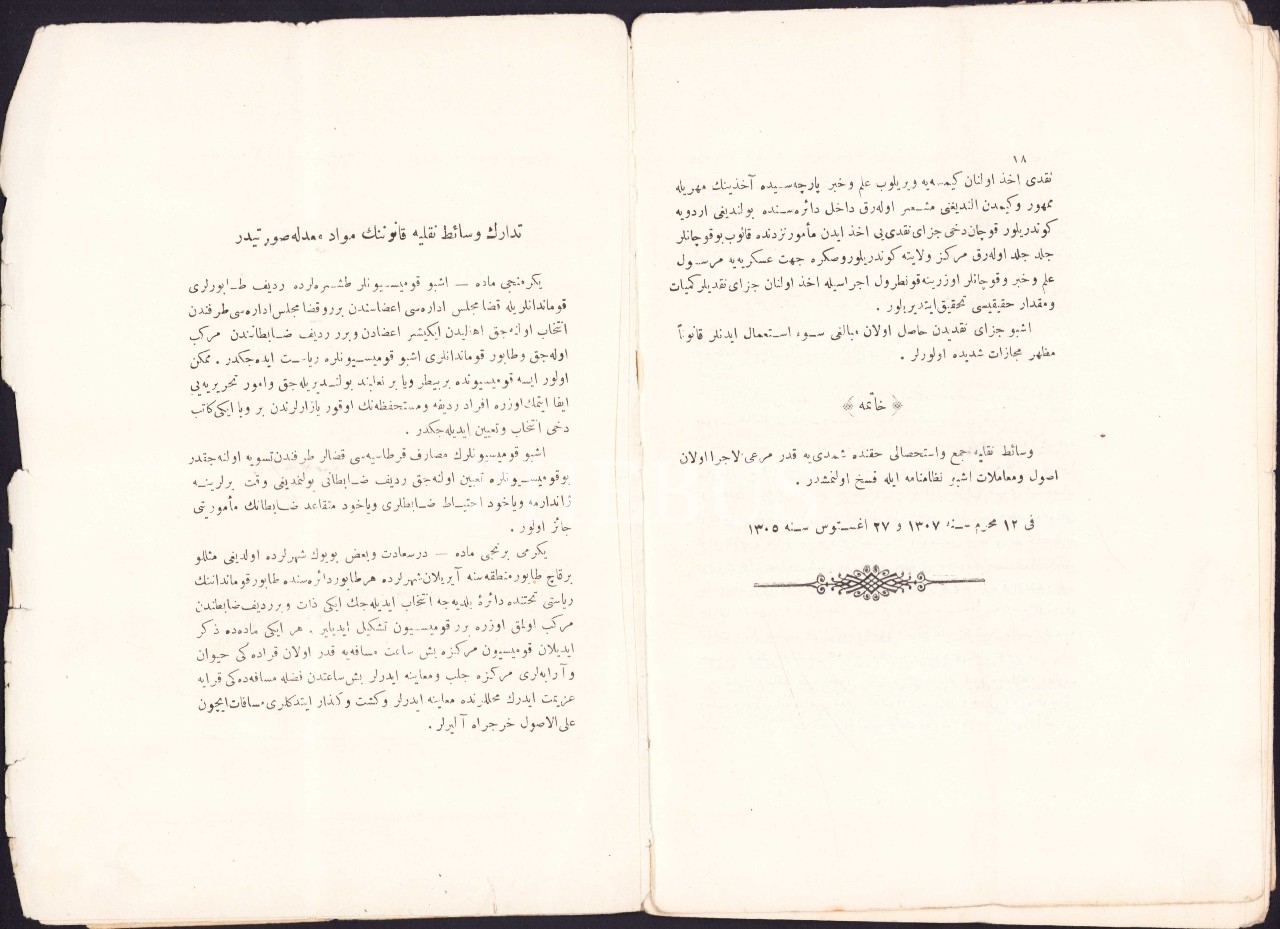 ١٨
نقدی اخذ اولنان كیمسه‌یه ویریلوب علم وخبر پارچه‌سیده آخذینك مهریله
ممهور وكیمدن الندیغنی مشعر اوله‌رق داخل دائره‌سنده بولندیغی اردویه
كوندریلور قوچان‌دخی جزای نقدی‌یی اخذ ایدن مأمورنزدنده قالوب‌بوقوچانلر
جلد جلد اوله‌رق مركز ولایته كوندریلوروصكره جهت عسكریه‌یه مرسول
علم وخبر وقوچانلر اوزرینه‌قونطرول اجراسیله اخذ اولنان جزای نقدیلر كمیات
ومقدار حقیقیسی تحقیق‌ایتدیریلور .
اشبو جزای نقدیدن حاصل اولان مبالغی سوء استعمال ایدنلر قانوناً
مظهر مجازات شدیده اولورلر .
﴿ خاتمه ﴾
وسائط نقلیه جمع واستحصالی حقنده شمدی‌یه قدر مرعی‌الاجرا اولان
اصول ومعاملات اشبو نظامنامه ایله فسخ اولنمشدر .
فی ١٢ محرم سنه ١٣٠٧ و ٢٧ اغستوس سنه ١٣٠٥
تدارك وسائط نقلیه قانوننك مواد معدله‌صورتیدر
یكرمنجی ماده — اشبو قومیسیونلر طشره‌لرده ردیف طابورلری
قوماندانلریله قضا مجلس اداره‌سی اعضاسندن برروقضا مجلس اداره‌سی طرفندن
انتخاب اولنه‌جق اهالیدن ایكیشر اعضادن وبرر ردیف ضابطاتندن مركب
اوله‌جق وطابور قوماندانلری اشبو قومیسیونلره ریاست ایده‌جكدر . ممكن
اولور ایسه قومیسیونده بربیطر ویا بر نعلبند بولندیریله‌جق وامور تحریریه‌یی
ایفا ایتمك‌اوزره افراد ردیفه ومستحفظه‌نك اوقور یازارلرندن بر ویا ایكی كاتب
دخی انتخاب وتعیین ایدیله‌جكدر .
اشبو قومیسیونلرك مصارف قرطاسیه‌سی قضالر طرفندن تسویه اولنه‌جقدر
بوقومیسیونلره تعیین اولنه‌جق ردیف ضابطانی بولنمدیغی وقت برلرینه
ژاندارمه ویاخود احتیاط ضابطلری ویاخود متقاعد ضابطانك مأموریتی
جائز اولور .
یكرمی برنجی ماده — درسعادت وبعض بویوك شهرلرده اولدیغی مثللو
برقاچ طابور منطقه‌سنه آیریلان‌شهرلرده هرطابوردائره‌سنده طابورقوماندانننك
ریاستی تحتنده دائرهٔ بلدیه‌جه انتخاب ایدیله‌جك ایكی ذات وبرردیف‌ضابطاندن
مركب اولمق اوزره برر قومیسیون تشكیل ایدیلیر . هر ایكی ماده‌ده ذكر
ایدیلان قومیسیون مركزه بش ساعت مسافه‌یه قدر اولان قراده كی حیوان
وآرابه‌لری مركزه جلب ومعاینه ایدرلر بش‌ساعتدن فضله مسافه‌ده‌كی قرایه
عزیمت ایدرك محللرنده معاینه ایدرلر وكشت وكذار ایتدكلری مسافات‌ایچون
علی‌الاصول خرجراه آلیرلر .